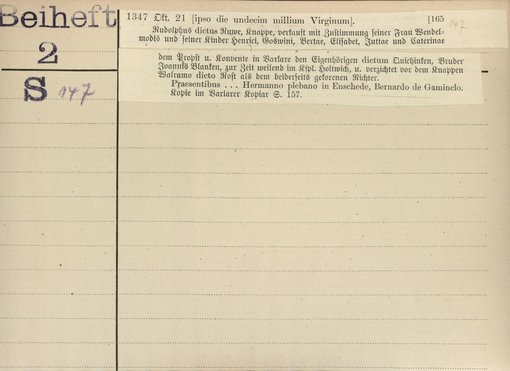 Beiheft
2
S 147
1347 Okt. 21 [ipso die undecim millium Virginum]. [165
147
Rudolphus dictus Ruwe, Knappe, verkauft mit Zustimmung seiner Frau Wendel-
modis und seiner Kinder Henrici, Goswini, Bertae, Elisabet, Juttae und Caterinae
dem Propst u. Konvente in Varlare den Eigenhörigen dictum Quichinken, Bruder
Joannis Blanken, zur Zeit weilend im Kspl. Holtwich, u. verzichtet vor dem Knappen
Walramo dicto Rost als dem beiderseits gekorenen Richter.
Praesentibus . . . Hermanno plebano in Enschede, Bernardo de Gaminclo.
Kopie im Varlarer Kopiar S. 157.